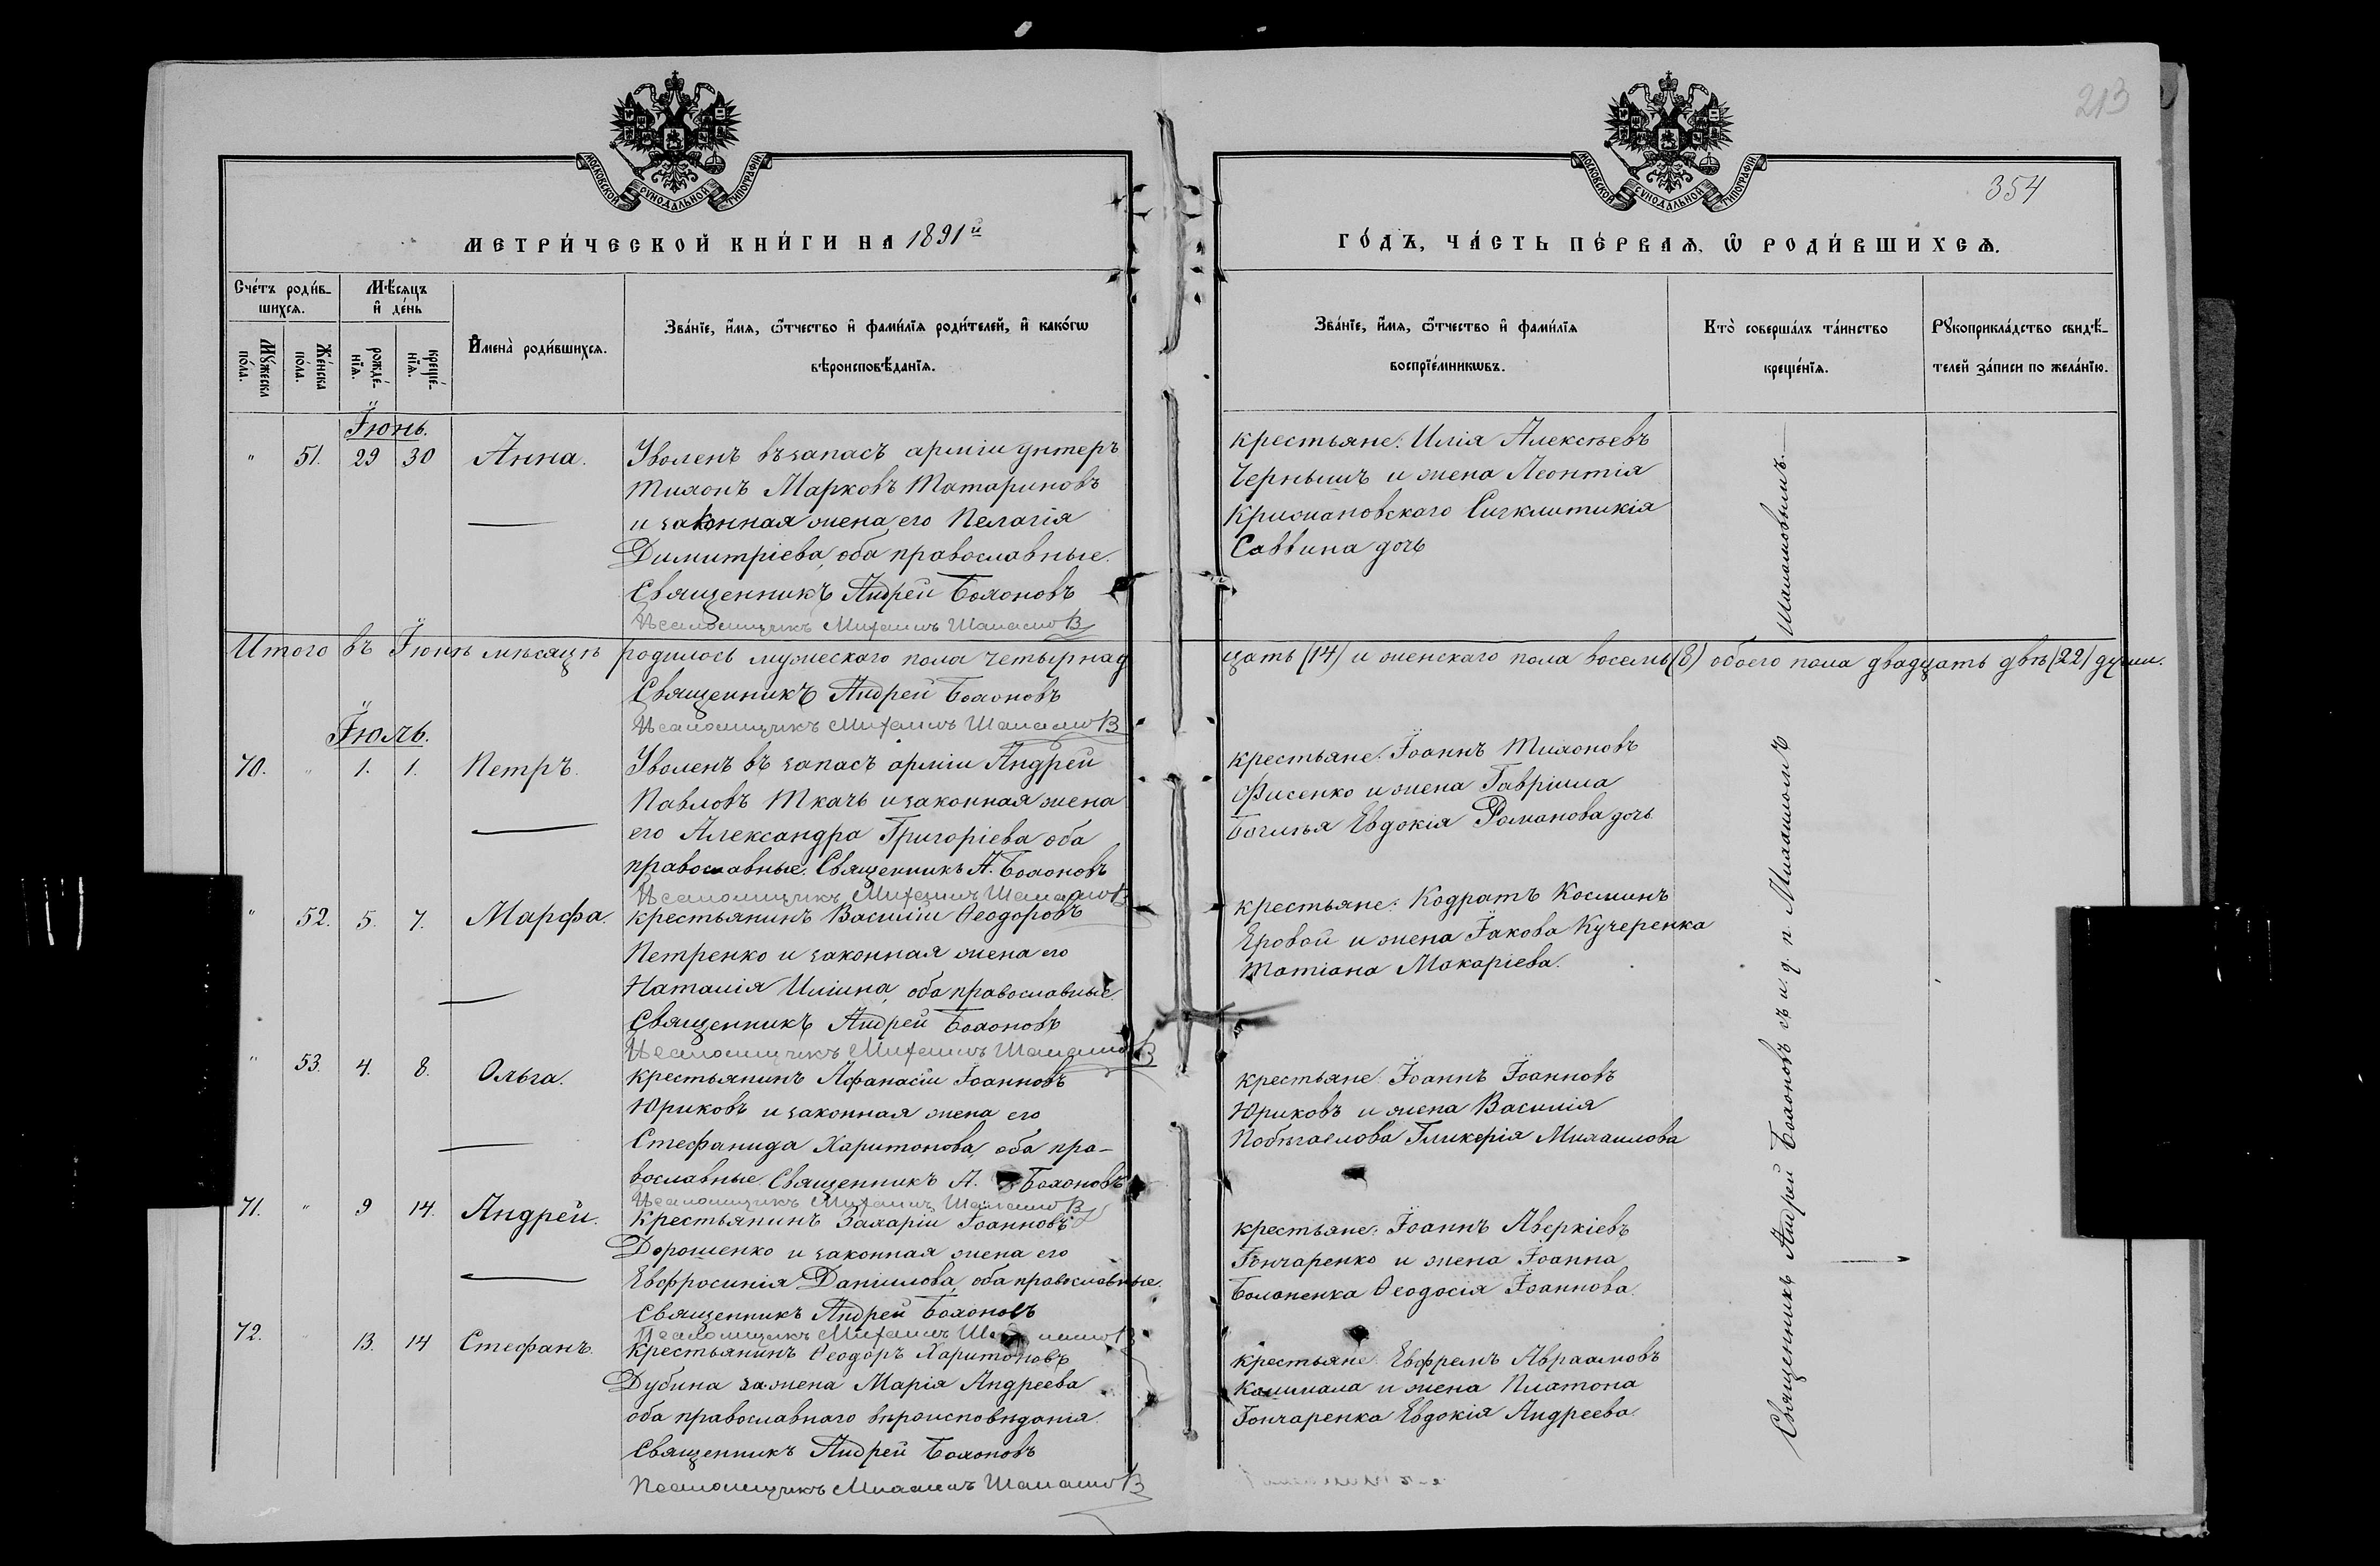 213
МОСКОВСКОЙ СУНОДАЛЬНОЙ ТИПОГРАФІИ
МОСКОВСКОЙ СУНОДАЛЬНОЙ ТИПОГРАФІИ
354
МЕТРИ́ЧЕСКОЙ КНИ́ГИ НА 1891й
ГО́ДЪ, ЧА́СТЬ ПЕ́РВАѦ, Ѡ РОДИ́ВШИХСѦ.
Сче́тъ роди́в-
шихсѧ.
Мѣ́сѧцъ
и҆ де́нь
Мꙋ́жеска по́ла.
Же́нска по́ла.
рожде́-
нїѧ.
креще́-
нїѧ.
И҆мена̀ роди́вшихсѧ.
Зва́нїе, и҆́мѧ, ѻ҆́тчество и҆ фами́лїѧ роди́телей, и҆ како́гѡ
вѣроисповѣ́данїѧ.
Зва́нїе, и҆́мѧ, ѻ҆́тчество и҆ фами́лїѧ
воспрїе́мникѡвъ.
Кто̀ соверша́лъ та́инство
креще́нїѧ.
Рꙋкоприкла́дство свидѣ́-
телей за́писи по жела́нїю.
Іюнь.
" 51. 29 30 Анна.
Уволенъ въ запасъ арміи унтеръ
Тихонъ Марковъ Татариновъ
и законная жена его Пелагія
Димитріева, оба православные.
Священникъ Андрей Бохоновъ
Псаломщикъ Михаилъ Шаламовъ
крестьяне: Илія Алексѣевъ
Чернышъ и жена Леонтія
Крижановскаго Сигклитикія
Саввина дочь
Итого въ Іюнѣ мѣсяцѣ родилось мужескаго пола четырнад
цать (14) и женскаго пола восемь (8) обоего пола двадцать двѣ (22) души.
Священникъ Андрей Бохоновъ
Псаломщикъ Михаилъ Шаламовъ
Іюль.
70. " 1. 1. Петръ.
Уволенъ въ запасъ арміи Андрей
Павловъ Ткачъ и законная жена
его Александра Григоріева оба
православные. Священникъ А. Бохоновъ
Псаломщикъ Михаилъ Шаламовъ
крестьяне: Іоаннъ Тихоновъ
Фисенко и жена Гавріила
Евдокія Романова дочь
" 52. 5. 7. Марфа.
крестьянинъ Василій Ѳеодоровъ
Петренко и законная жена его
Наталія Иліина, оба православные.
Священникъ Андрей Бохоновъ
Псаломщикъ Михаилъ Шаламовъ
крестьяне: Кодратъ Косминъ
Еровой и жена Іакова Кучеренка
Татіана Макаріева.
" 53. 4. 8. Ольга.
крестьянинъ Афанасій Іоанновъ
Юриковъ и законная жена его
Стефанида Харитонова, оба пра-
вославные. Священникъ А. Бохоновъ
Псаломщикъ Михаилъ Шаламовъ
крестьяне: Іоаннъ Іоанновъ
Юриковъ и жена Василія
Побѣгаелова Гликерія Михаилова
71. " 9 14. Андрей.
Крестьянинъ Захарій Іоанновъ
Дорошенко и законная жена его
Евфросинія Даніилова, оба православные.
Священникъ Андрей Бохоновъ
Псаломщикъ Михаилъ
крестьяне: Іоаннъ Аверкіевъ
Гончаренко и жена Іоанна
Ѳеодосія Іоаннова.
72. " 13. 14 Стефанъ.
Крестьянинъ Ѳеодоръ Харитоновъ
Дубина за.жена Марія Андреева
оба православнаго вѣроисповѣданія.
Священникъ Андрей Бохоновъ
Псаломщикъ Михаилъ Шаламовъ
крестьяне: Евфремъ Авраамовъ
и жена Платона
Гончаренка Евдокія Андреева.
Священникъ Андрей Бохоновъ съ и. д. п. Михаиломъ Шаламовымъ.